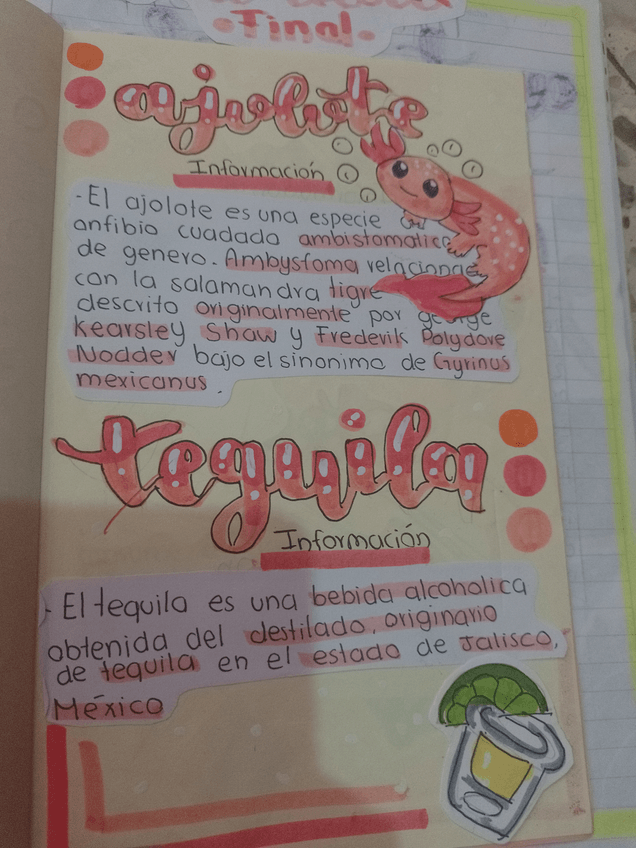 Final
ajolote
Información
- El ajolote es una especie
anfibio cuadado ambistomatica
de genero. Ambystoma relacionae
con la salamandra tigre
descrito originalmente por george
Kearsley Shaw y Frederik Polydove
Nodder bajo el sinonimo de Gyrinus
mexicanus.
tequila
Información
- El tequila es una bebida alcoholica
obtenida del destilado, originario
de tequila en el estado de Jalisco,
México